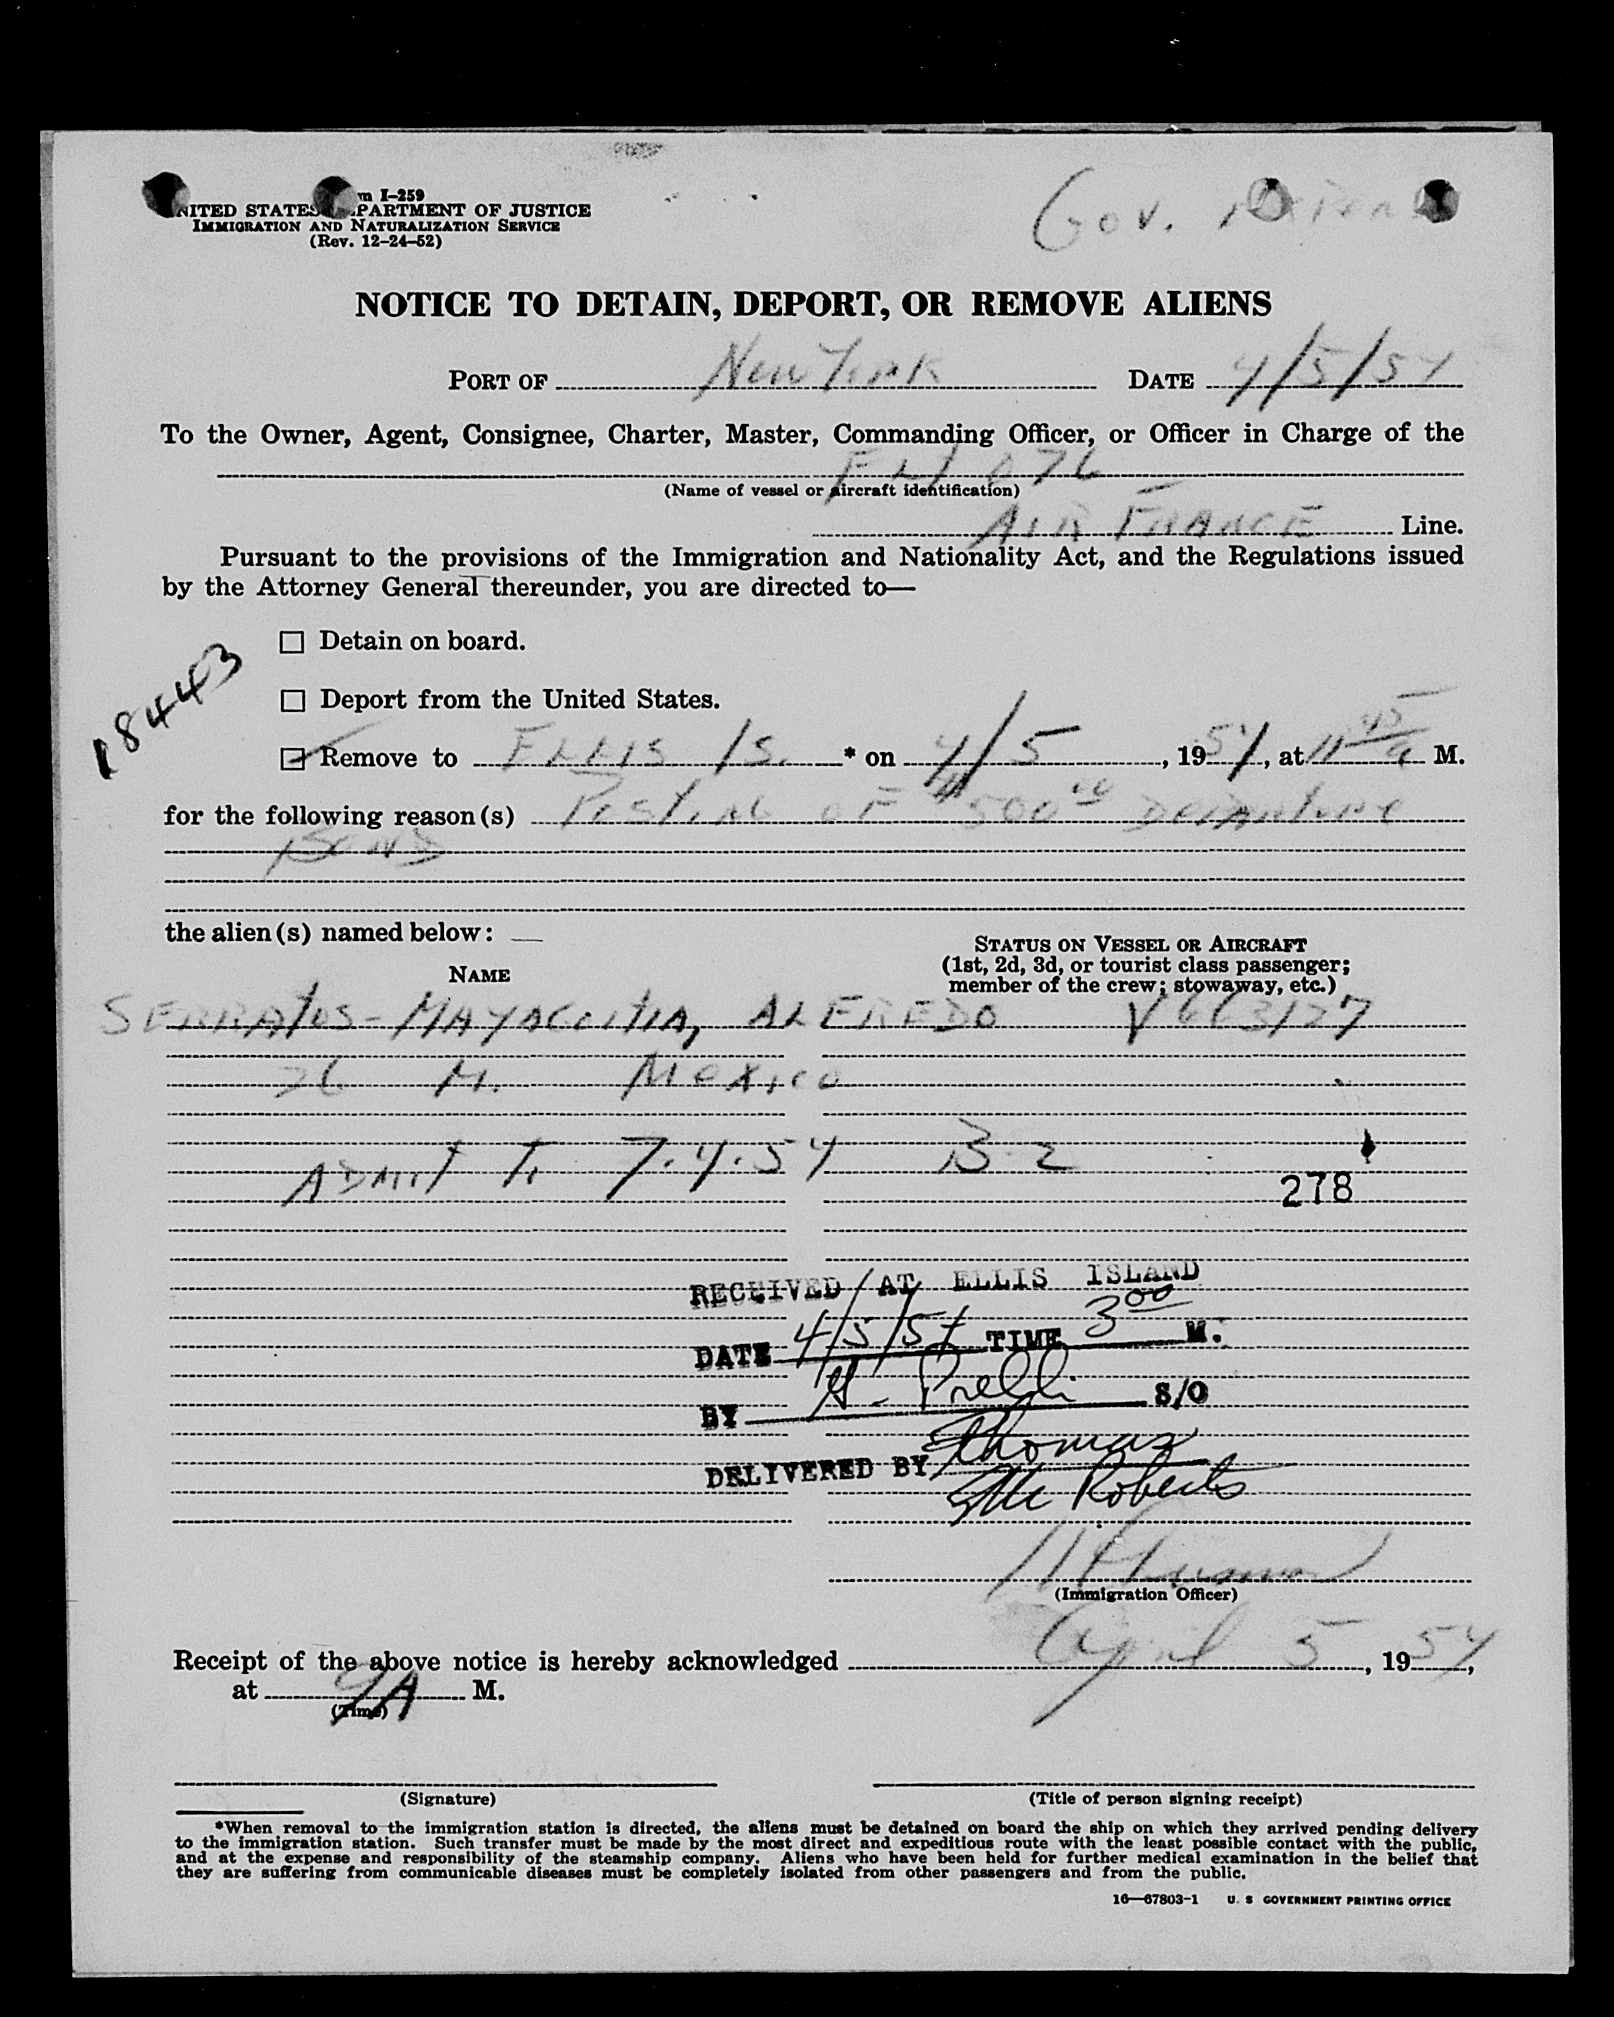 m I-259
UNITED STATES DEPARTMENT OF JUSTICE
IMMIGRATION AND NATURALIZATION SERVICE
(Rev. 12-24-52)
Gov.
NOTICE TO DETAIN, DEPORT, OR REMOVE ALIENS
PORT OF New York DATE 4/5/54
To the Owner, Agent, Consignee, Charter, Master, Commanding Officer, or Officer in Charge of the
FLT 076
(Name of vessel or aircraft identification)
AIR FRANCE Line.
Pursuant to the provisions of the Immigration and Nationality Act, and the Regulations issued
by the Attorney General thereunder, you are directed to—
☐ Detain on board.
18443
☐ Deport from the United States.
☑ Remove to ELLIS IS. * on 4/5, 1954, at 11 45 A M.
for the following reason(s) Posting of $500 00 Departure
Bond
the alien(s) named below:
STATUS ON VESSEL OR AIRCRAFT
(1st, 2d, 3d, or tourist class passenger;
member of the crew; stowaway, etc.)
NAME
SERRATOS-MAYAGOITIA, ALFREDO V663127
26 M. Mexico
ADMIT To 7.4.54 B-2
278
RECEIVED AT ELLIS ISLAND
DATE 4/5/54 TIME 3 00 M.
BY S/O
DELIVERED BY Thomas
Roberts
(Immigration Officer)
Receipt of the above notice is hereby acknowledged April 5, 1954,
at 9A M.
(Time)
(Signature) (Title of person signing receipt)
*When removal to the immigration station is directed, the aliens must be detained on board the ship on which they arrived pending delivery
to the immigration station. Such transfer must be made by the most direct and expeditious route with the least possible contact with the public,
and at the expense and responsibility of the steamship company. Aliens who have been held for further medical examination in the belief that
they are suffering from communicable diseases must be completely isolated from other passengers and from the public.
16—67803-1 U. S GOVERNMENT PRINTING OFFICE